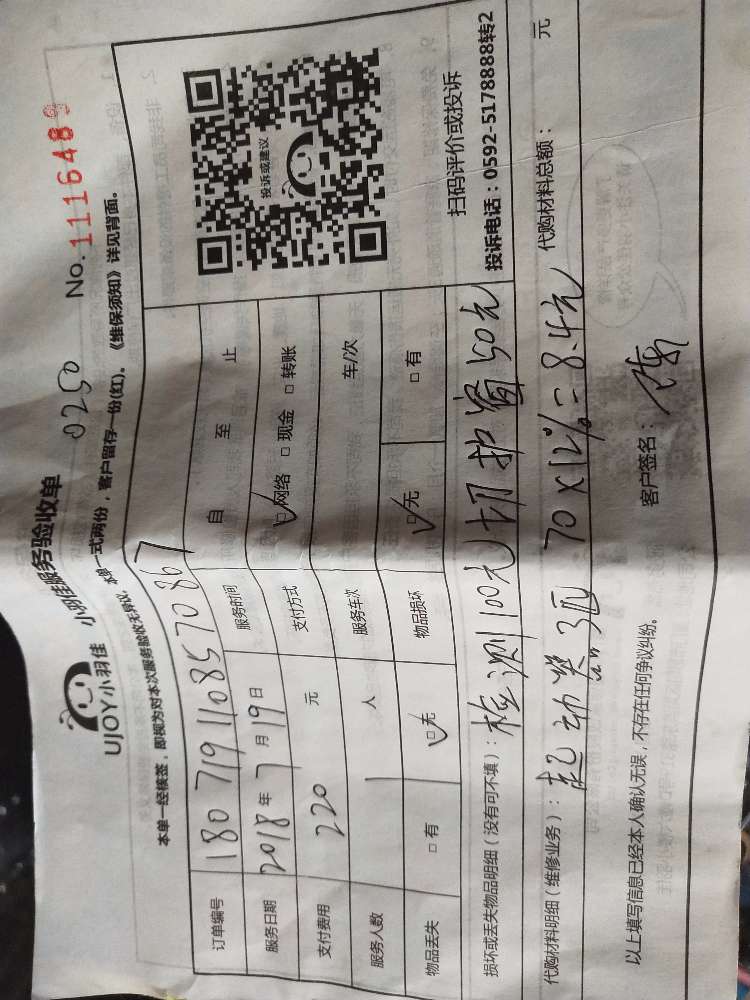 UJOY小羽佳 小羽佳服务验收单 0250 No.1116489
本单一经核签，即视为对本次服务验收无异议，本单一式两份，客户留存一份(红)。《维保须知》详见背面。
订单编号 1807191108570867
服务日期 2018年7月19日 服务时间 自 至 止
支付费用 220 元 支付方式 ☑网络 □现金 □转账
服务人数 1 人 服务车次 车/次
物品丢失 □有 ☑无 物品损坏 ☑无 □有
投诉或建议
扫码评价或投诉
投诉电话：0592-5178888转2
损坏或丢失物品明细（没有可不填）：检测100元 切护窗50元
代购材料明细（维修业务）：起动器3匹 70×12%=8.4元 代购材料总额： 元
以上填写信息已经本人确认无误，不存在任何争议纠纷。 客户签名：